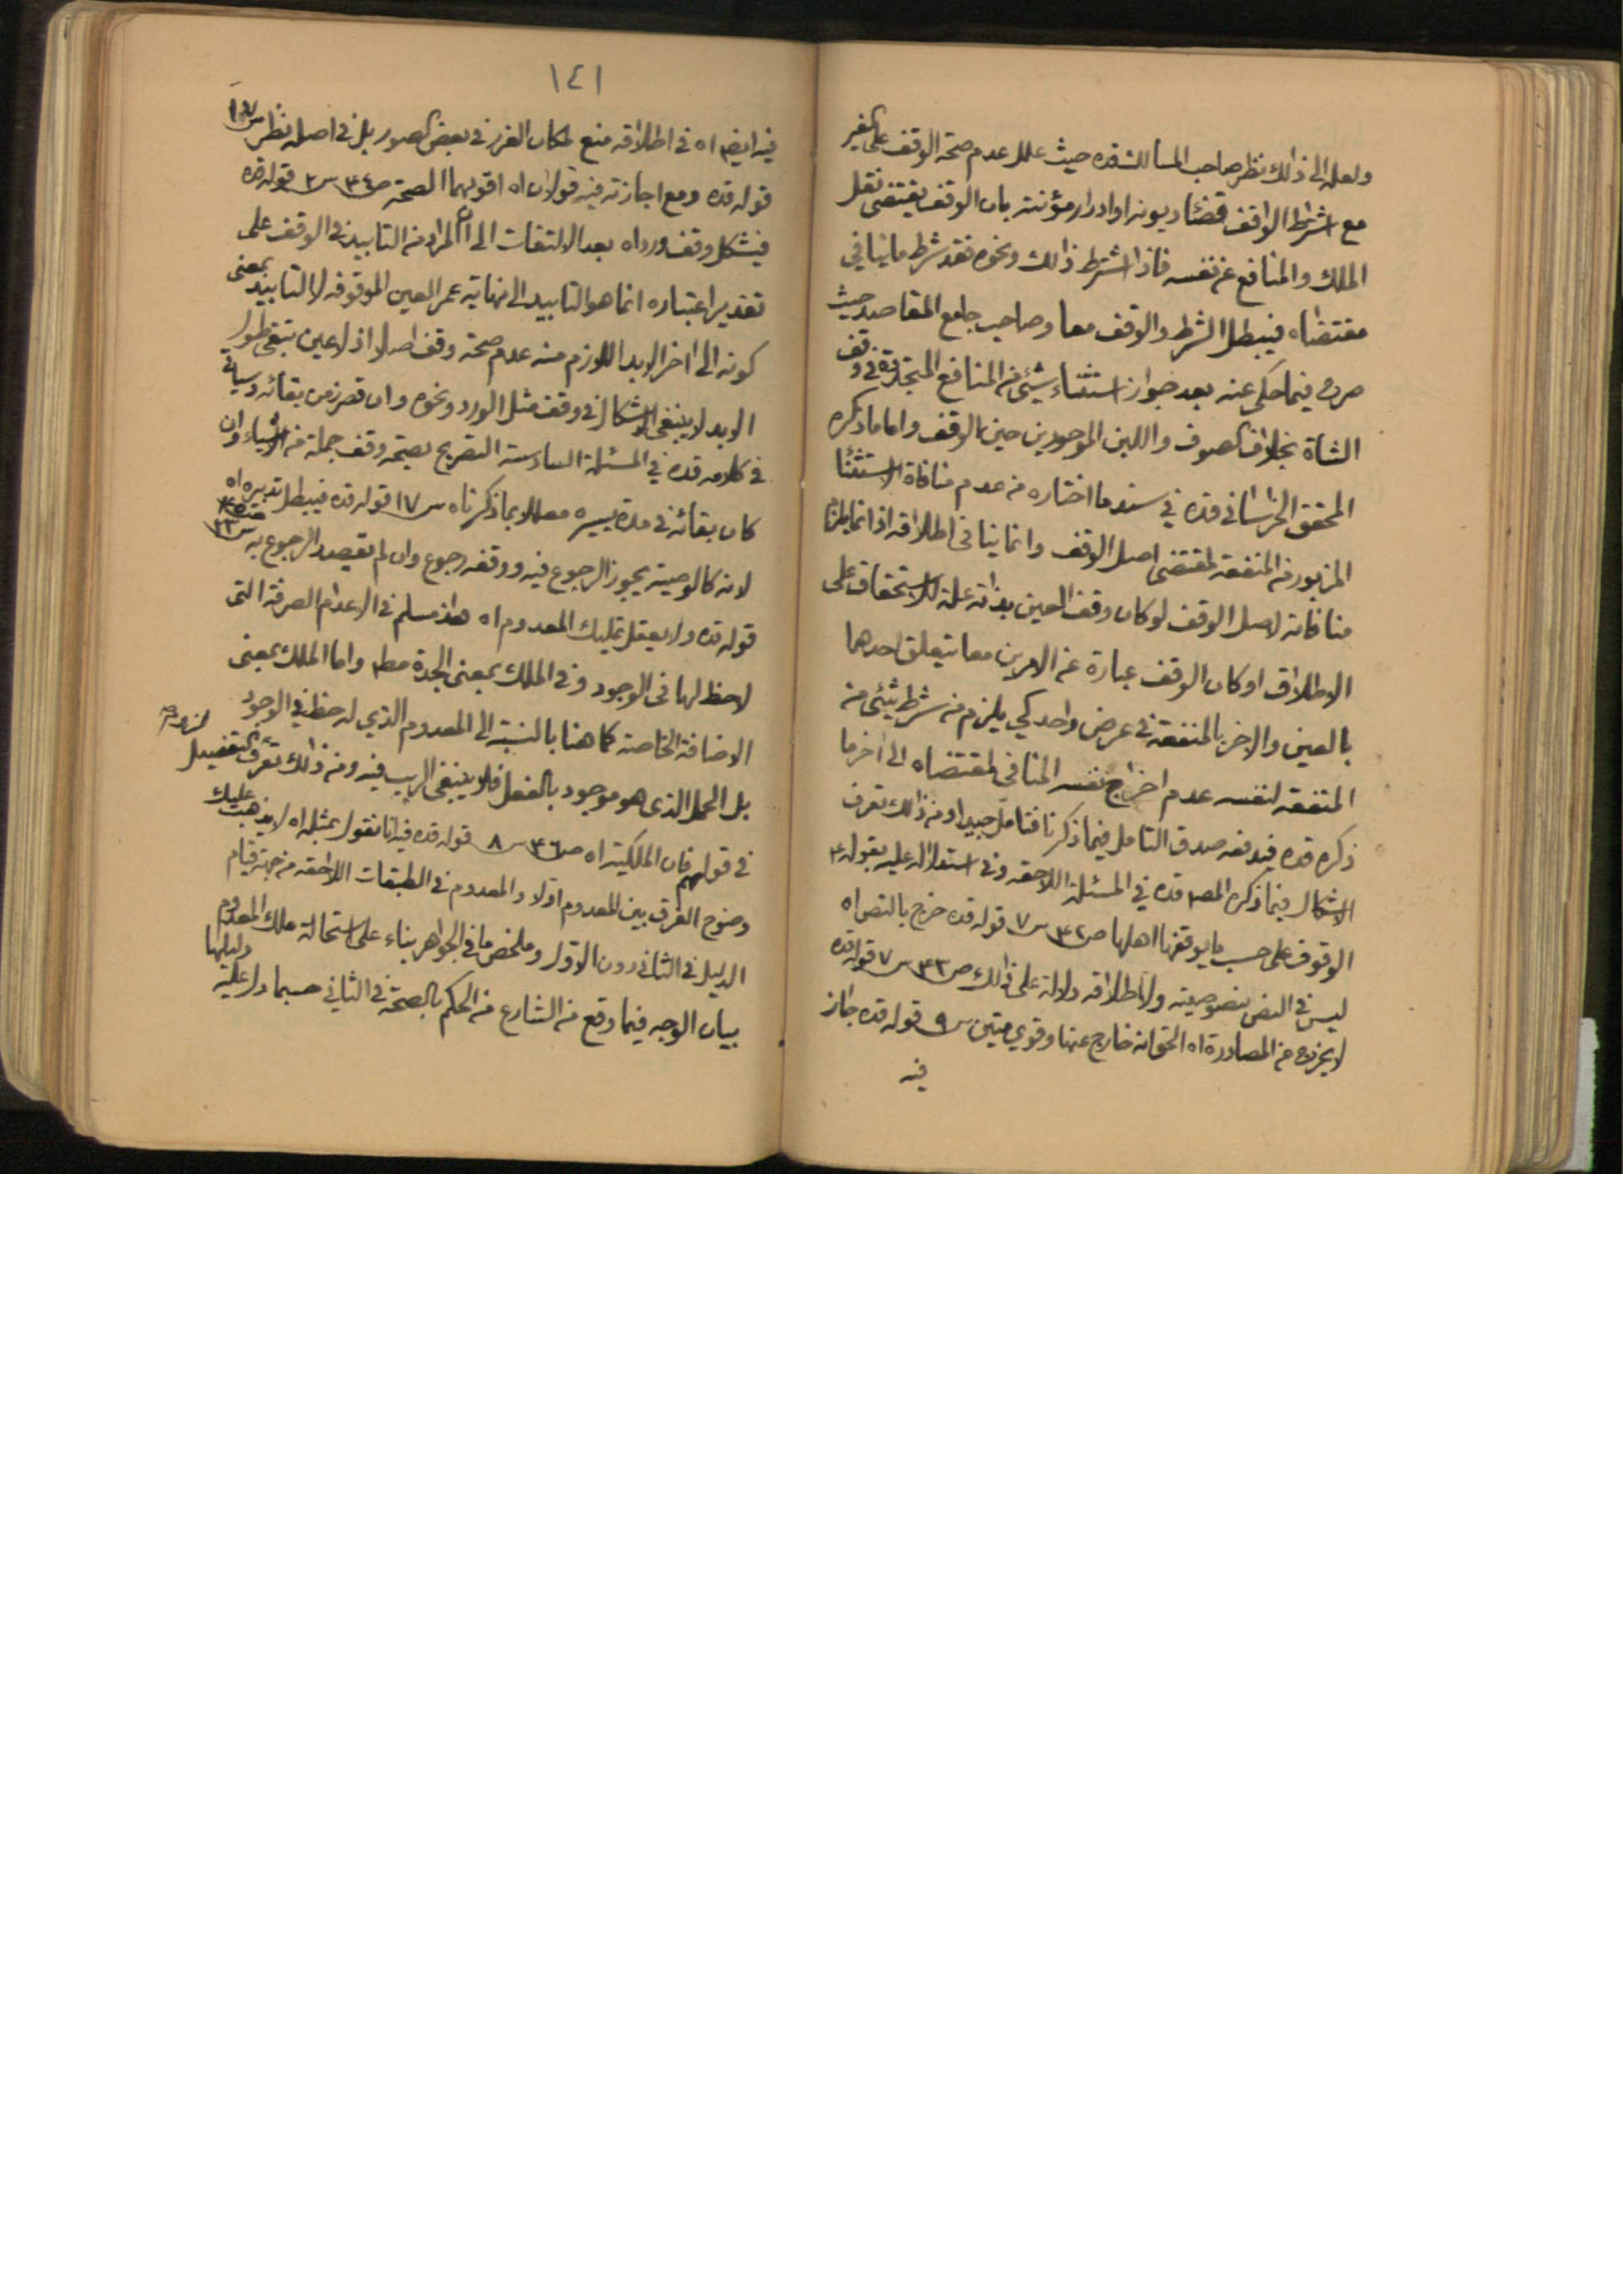 ولعله الى ذالك نظر صاحب المسالك قده حيث علل عدم صحة الوقف على الغير
مع اشتراط الواقف قضاء ديونه او ادرار مؤنته بان الوقف يقتضى نقل
الملك والمنافع عن نفسه فاذا اشترط ذالك ونحوه فقد شرط ما ينافي
مقتضاه فيبطل الشرط والوقف معا وصاحب جامع المقاصد حيث
صرح فيما حكى عنه بعد جواز استثناء شيئ من المنافع المتجددة في وقف
الشاة بخلاف الصوف واللبن الموجودين حين الوقف واما ما ذكره
المحقق الخراسانى قده في سند ما اختاره من عدم منافاة الاستثنا
المزبور من المنفعة لمقتضى اصل الوقف وانما ينافى اطلاقه اذ انما يلزم
منافاته لاصل الوقف لو كان وقف العين بذاته علة للاستحقاق على
الاطلاق او كان الوقف عبارة عن الامرين معا يتعلق احدهما
بالعين والاخر بالمنفعة في عرض واحد كي يلزم من شرط شيئ من
المنفعة لنفسه عدم اخراج نفسه المنافى لمقتضاه الى اخر ما
ذكره قده فيدفعه صدق التامل فيما ذكرنا فتامل جيدا ومن ذالك تعرف
الاشكال فيما ذكره المصـ قده في المسئلة اللاحقه وفى استدلاله عليه بقوله ع
الوقوف على حسب ما يوقفها اهلها صـ ٣٢ سـ ٧ قوله قده خرج بالنص اه
ليس في النص بنصوصيته ولا باطلاقه دلالة على ذالك صـ ٣٣ سـ ٧ قوله قده
لا يخرج من المصادرة اه الحق انه خارج عنها وقوي متين سـ ٩ قوله قده جاز
فيه
١٤١
فيه ايضا اه فى اطلاقه منع لمكان الغرر في بعض الصور بل في اصله نظر
قوله قده ومع اجازته فيه قولان اه اقويهما الصحة صـ ٣٤ سـ ٢ قوله قده
فيشكل وقف ورد اه بعد الالتفات الى ان المراد من التابيد في الوقف على
تقدير اعتباره انما هو التابيد الى نهاية عمر العين الموقوفه لا التابيد بمعنى
كونه الى اخر الابد اللازم منه عدم صحة وقف اصلا اذ لا عين تبقى طول
الابد لا ينبغى الاشكال في وقف مثل الورد ونحوه وان قصر زمن بقائه وسياتى
في كلامه قده في المسئلة السادسة التصريح بصحة وقف جملة من الاشياء وان
كان بقائه في مدة يسيره معللا بما ذكرناه سـ ١٧ قوله قده فيبطل تدبيره اه
لانه كالوصية يجوز الرجوع فيه ووقفه رجوع وان لم يقصد الرجوع به سـ ٢٢
قوله قده ولا يعقل تمليك المعدوم اه هذا مسلم في الاعدام الصرفة التى
لاحظ لها فى الوجود وفى الملك بمعنى الجدة مطـ واما الملك بمعنى
الاضافة الخاصة كما هنا بالنسبة الى المعدوم الذي له حظ في الوجود
بل الحمل الذى هو موجود بالفعل فلا ينبغى الريب فيه ومن ذالك تعرف التفصيل
فى قولهم فان الملكية اه صـ ٣٦ سـ ٨ قوله قده فيه انا نقول بمثله اه لا يذهب عليك
وضوح الفرق بين المعدوم اولا والمعدوم في الطبقات اللاحقه من جهة قيام
الدليل فى الثانى دون الاول وملخص ما فى الجواهر بناء على استحالة ملك المعدوم
بيان الوجه فيما وقع من الشارع من الحكم بالصحة فى الثانى حسبما دل عليه دليلها